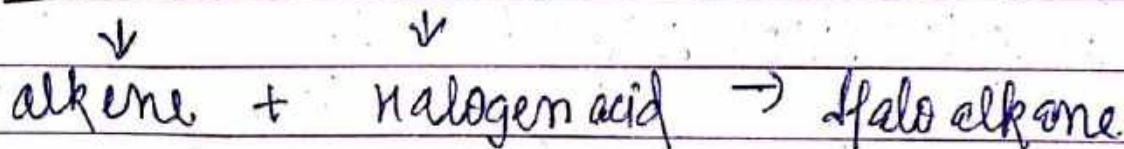 ↓ ↓
alkene + Halogen acid → Halo alkane